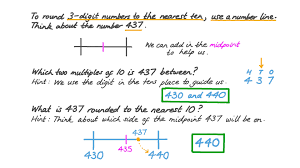 To round 3-digit numbers to the nearest ten, use a number line.
Think about the number 437.
We can add in the midpoint
to help us.
Which two multiples of 10 is 437 between?
Hint: We use the digit in the tens place to guide us.
H T O
4 3 7
430 and 440
What is 437 rounded to the nearest 10?
Hint: Think about which side of the midpoint 437 will be on.
437
430 435 440
440